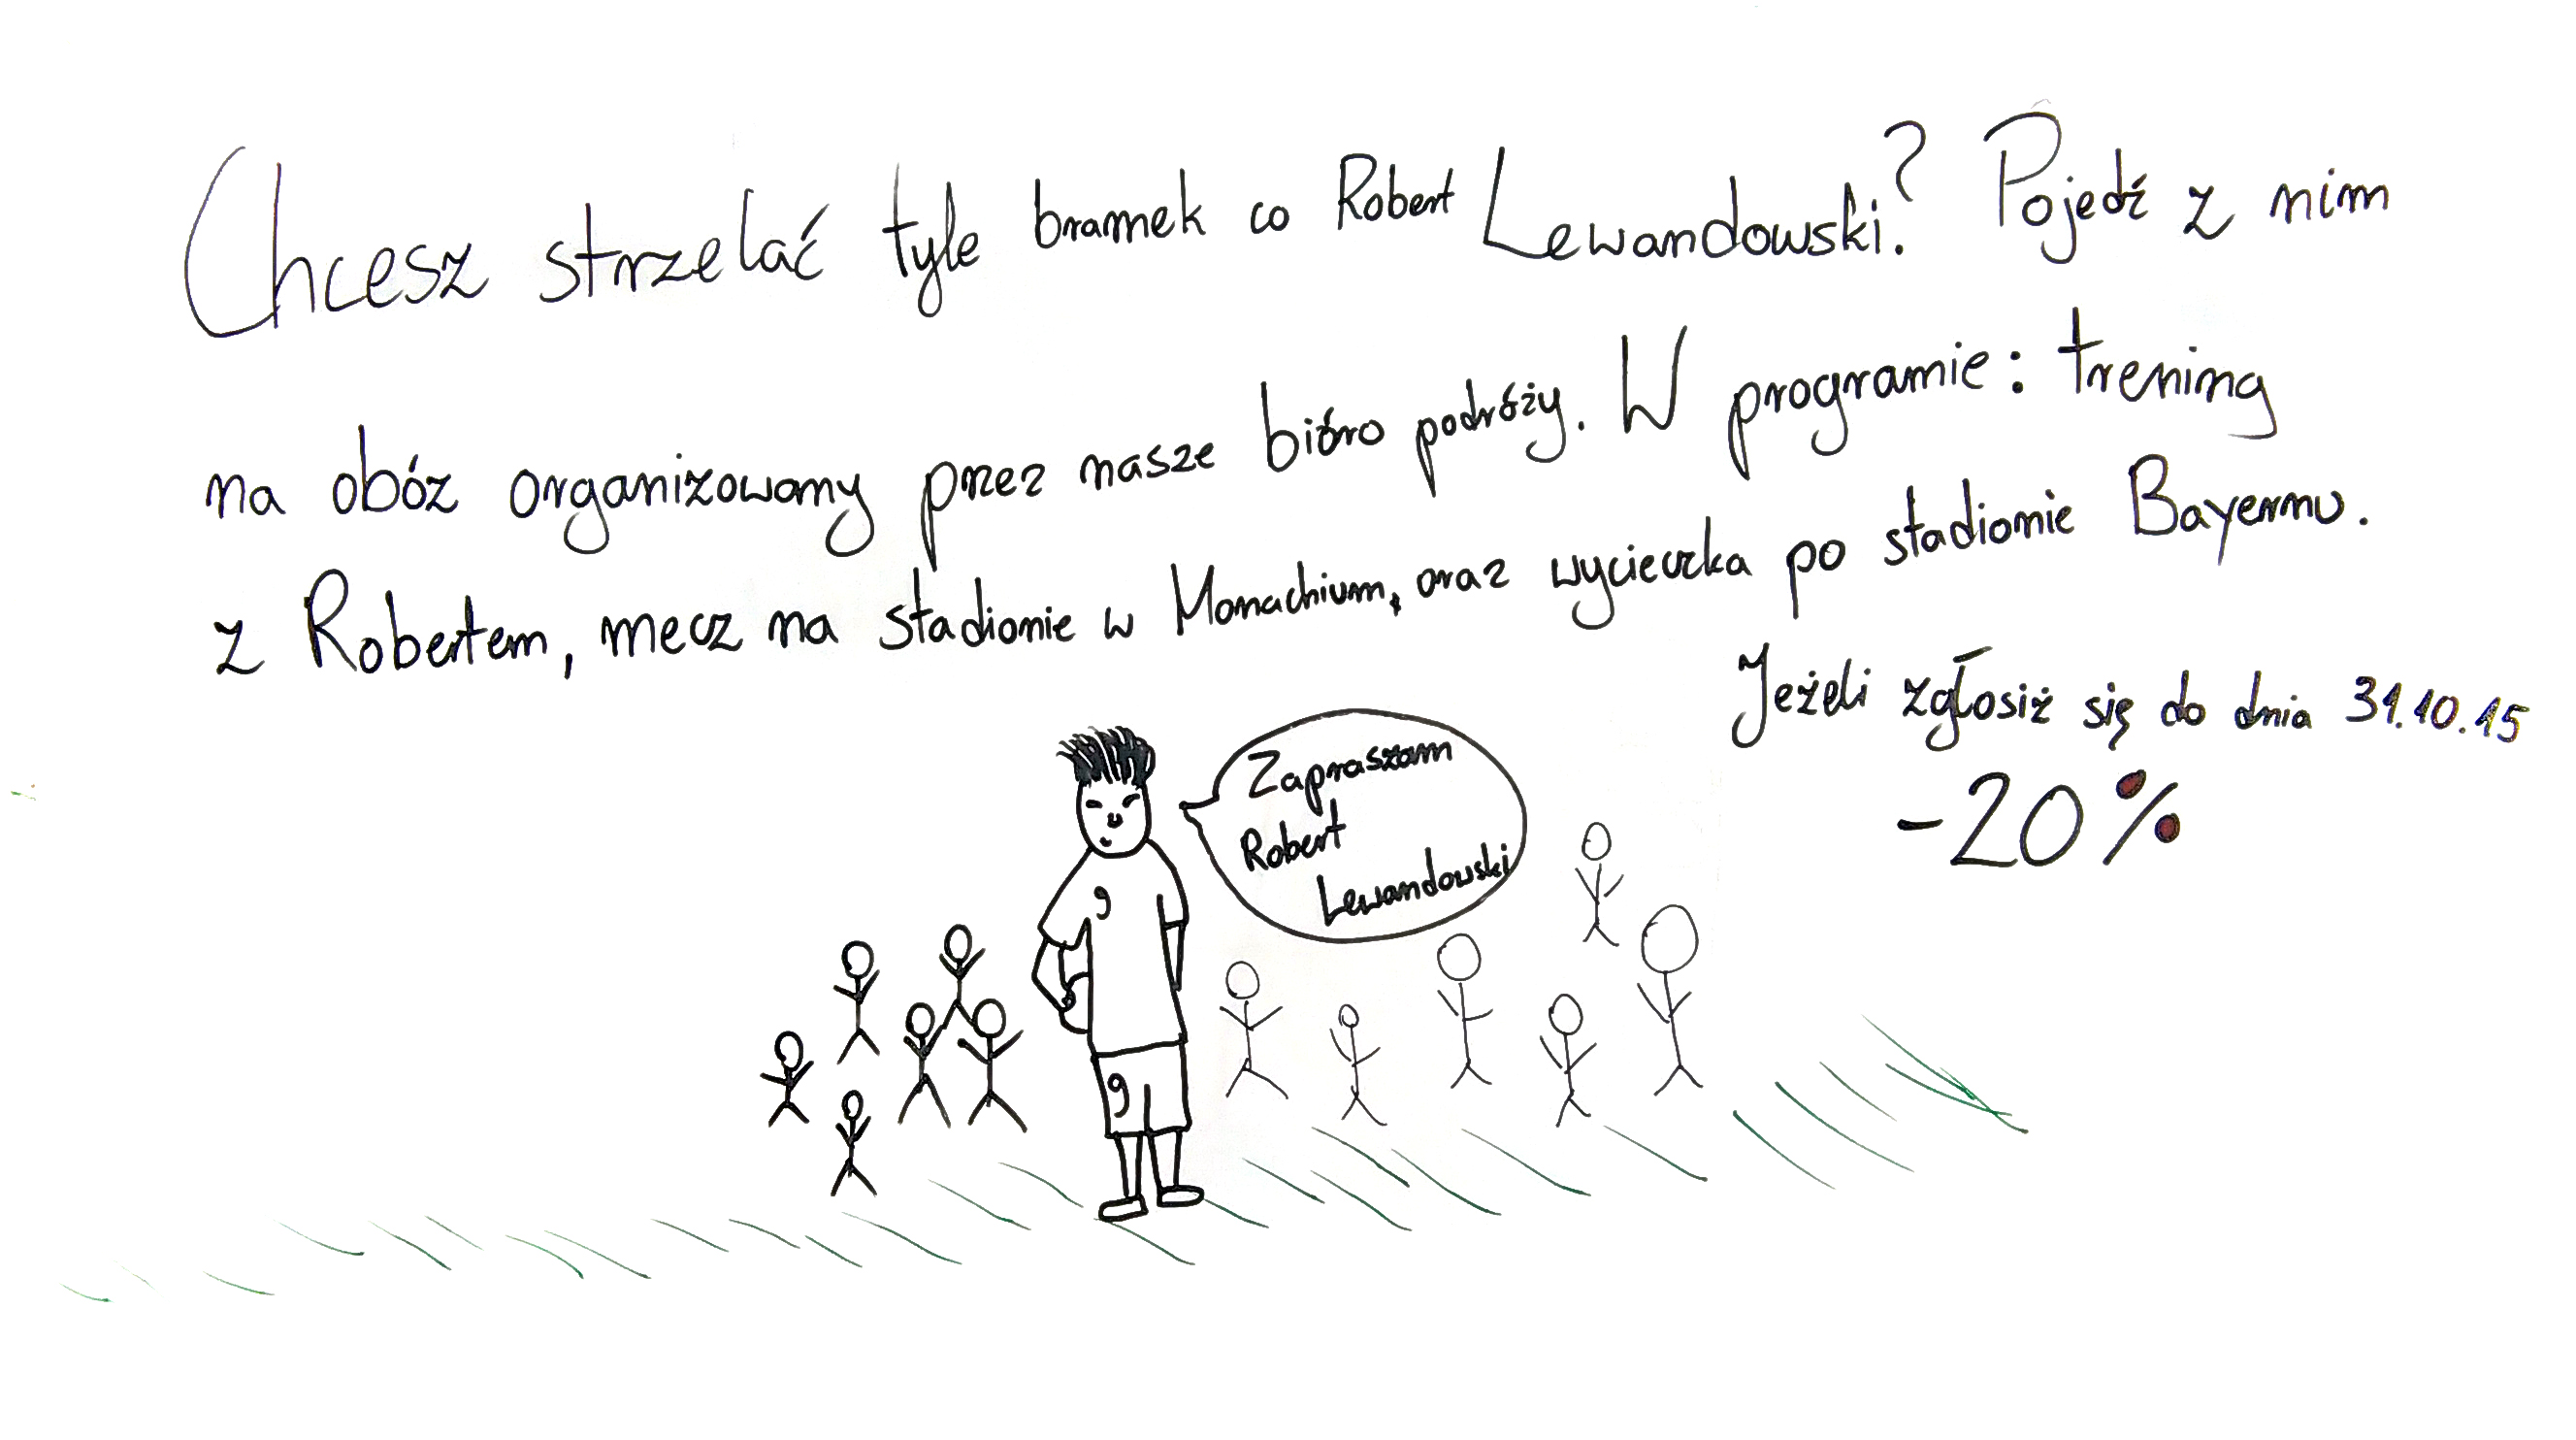 Chcesz strzelać tyle bramek co Robert Lewandowski? Pojedź z nim
na obóz organizowany przez nasze bióro podróży. W programie: trening
z Robertem, mecz na stadionie w Monachium, oraz wycieczka po stadionie Bayernu.
Jeżeli zgłosiż się do dnia 31.10.15
-20%
Zapraszam
Robert
Lewandowski
9
9